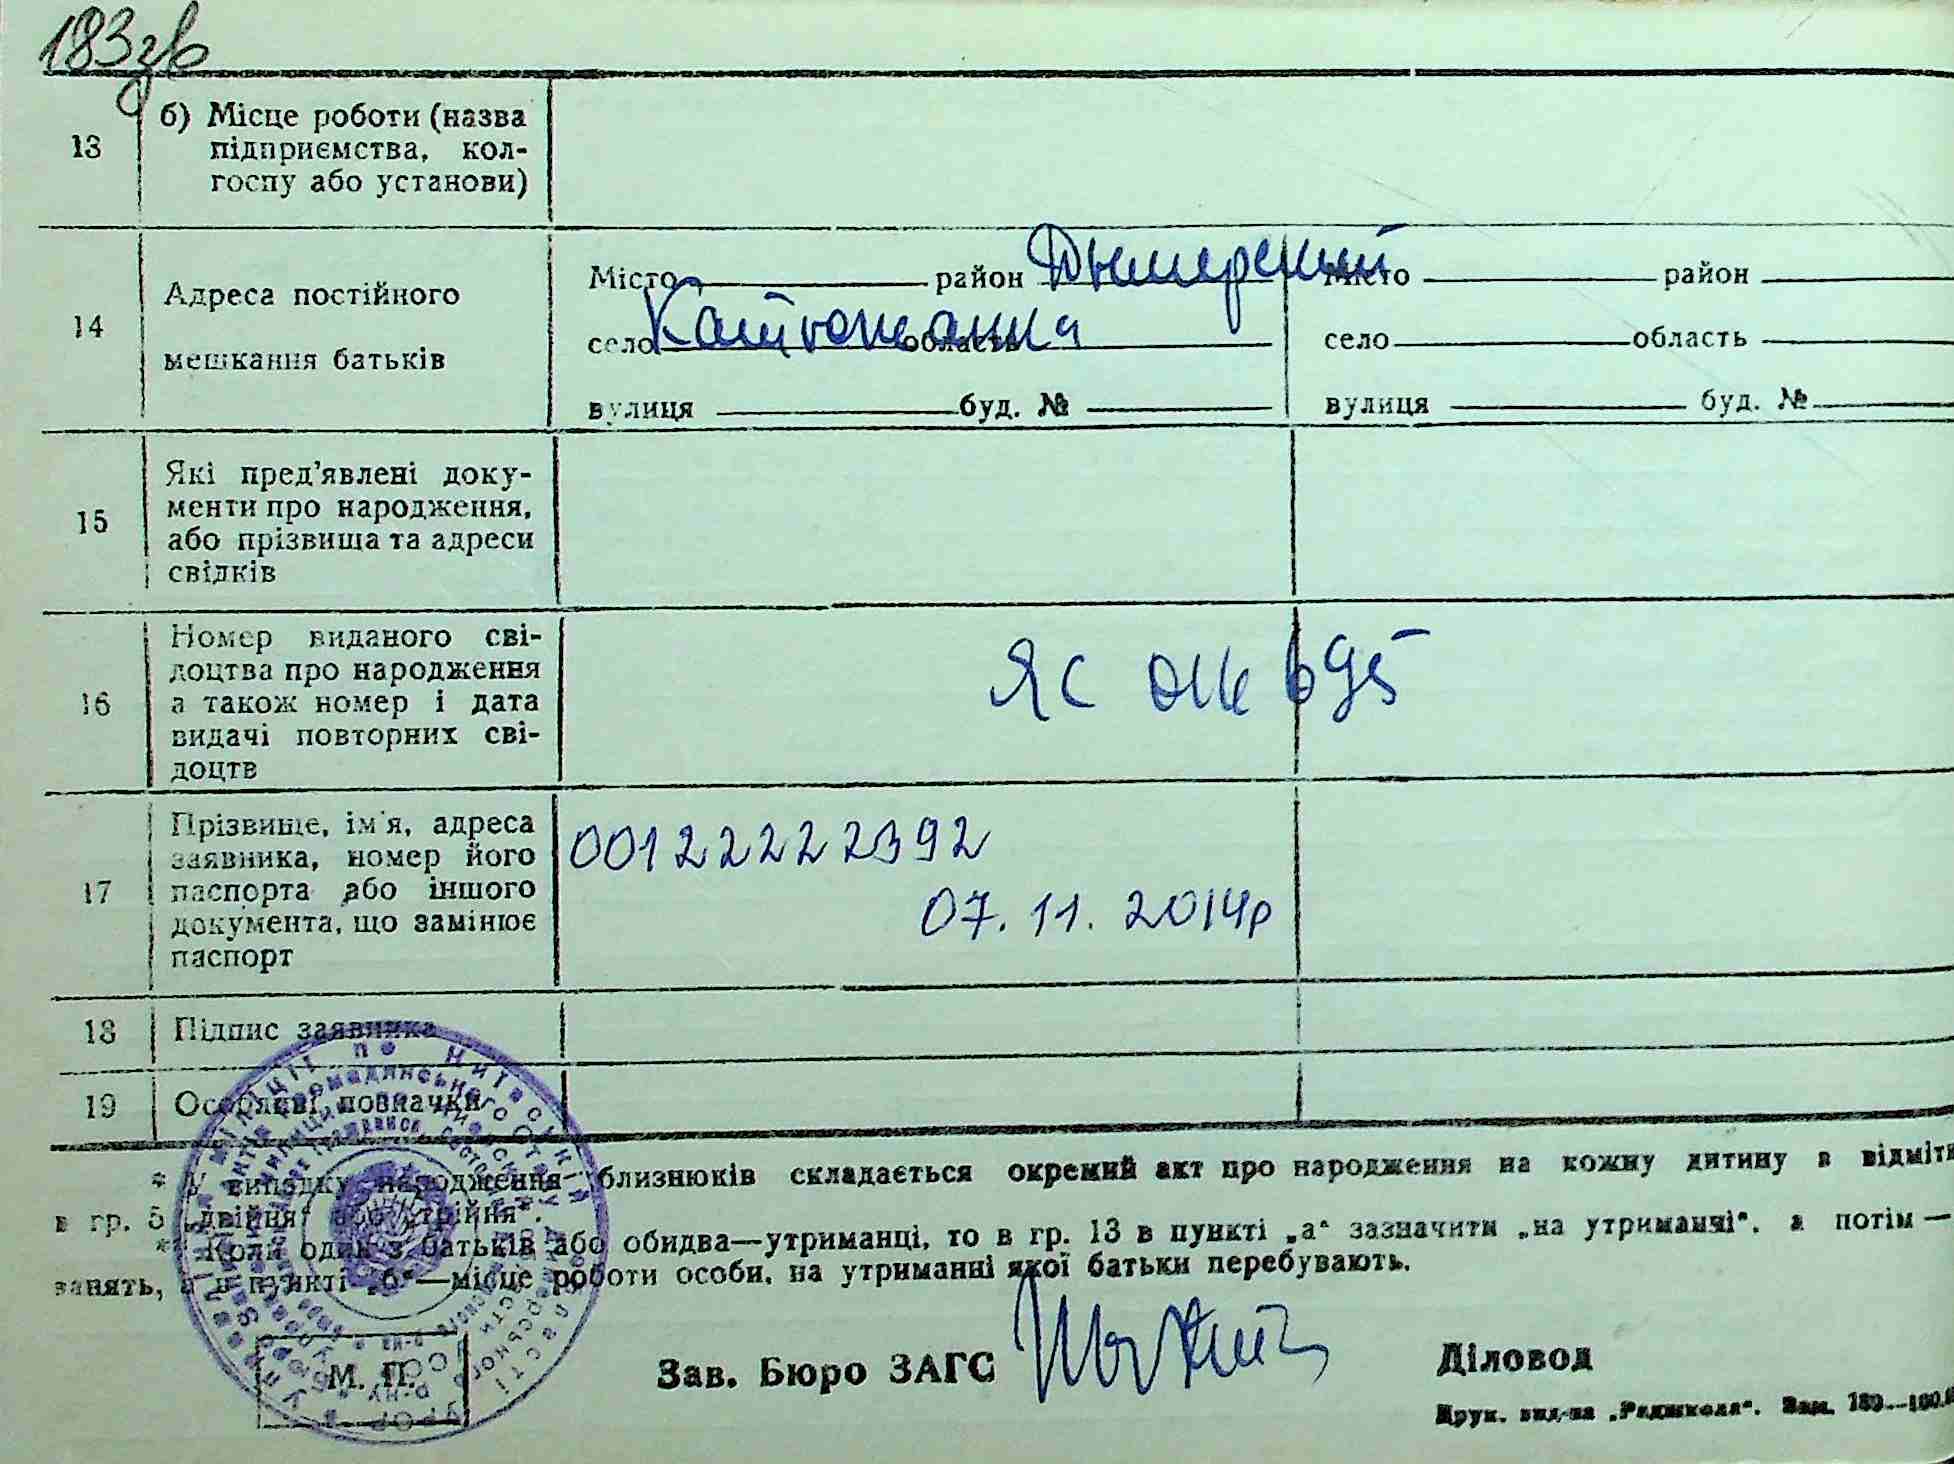 183зв
13
б) Місце роботи (назва
підприємства, кол-
госпу або установи)
14
Адреса постійного
мешкання батьків
Місто район Дымерский
село Катюжанка область
вулиця буд. №
Місто район
село область
вулиця буд. №
15
Які пред'явлені доку-
менти про народження,
або прізвища та адреси
свідків
16
Номер виданого сві-
доцтва про народження
а також номер і дата
видачі повторних сві-
доцтв
ЯС 016695
17
Прізвище, ім'я, адреса
заявника, номер його
паспорта або іншого
документа, що замінює
паспорт
00122222392
07.11.2014р
18
Підпис заявника
19
Особливі позначки
* У випадку народження близнюків складається окремий акт про народження на кожну дитину в відмітк
в гр. 5 „двійня" або „трійня".
** Коли один з батьків або обидва—утриманці, то в гр. 13 в пункті „а" зазначити „на утриманні", а потім —
занять, а в пункті „б"—місце роботи особи, на утриманні якої батьки перебувають.
М. П.
Зав. Бюро ЗАГС
Діловод
Друк. вид-ва „Радшкола". Зам. 180—160.